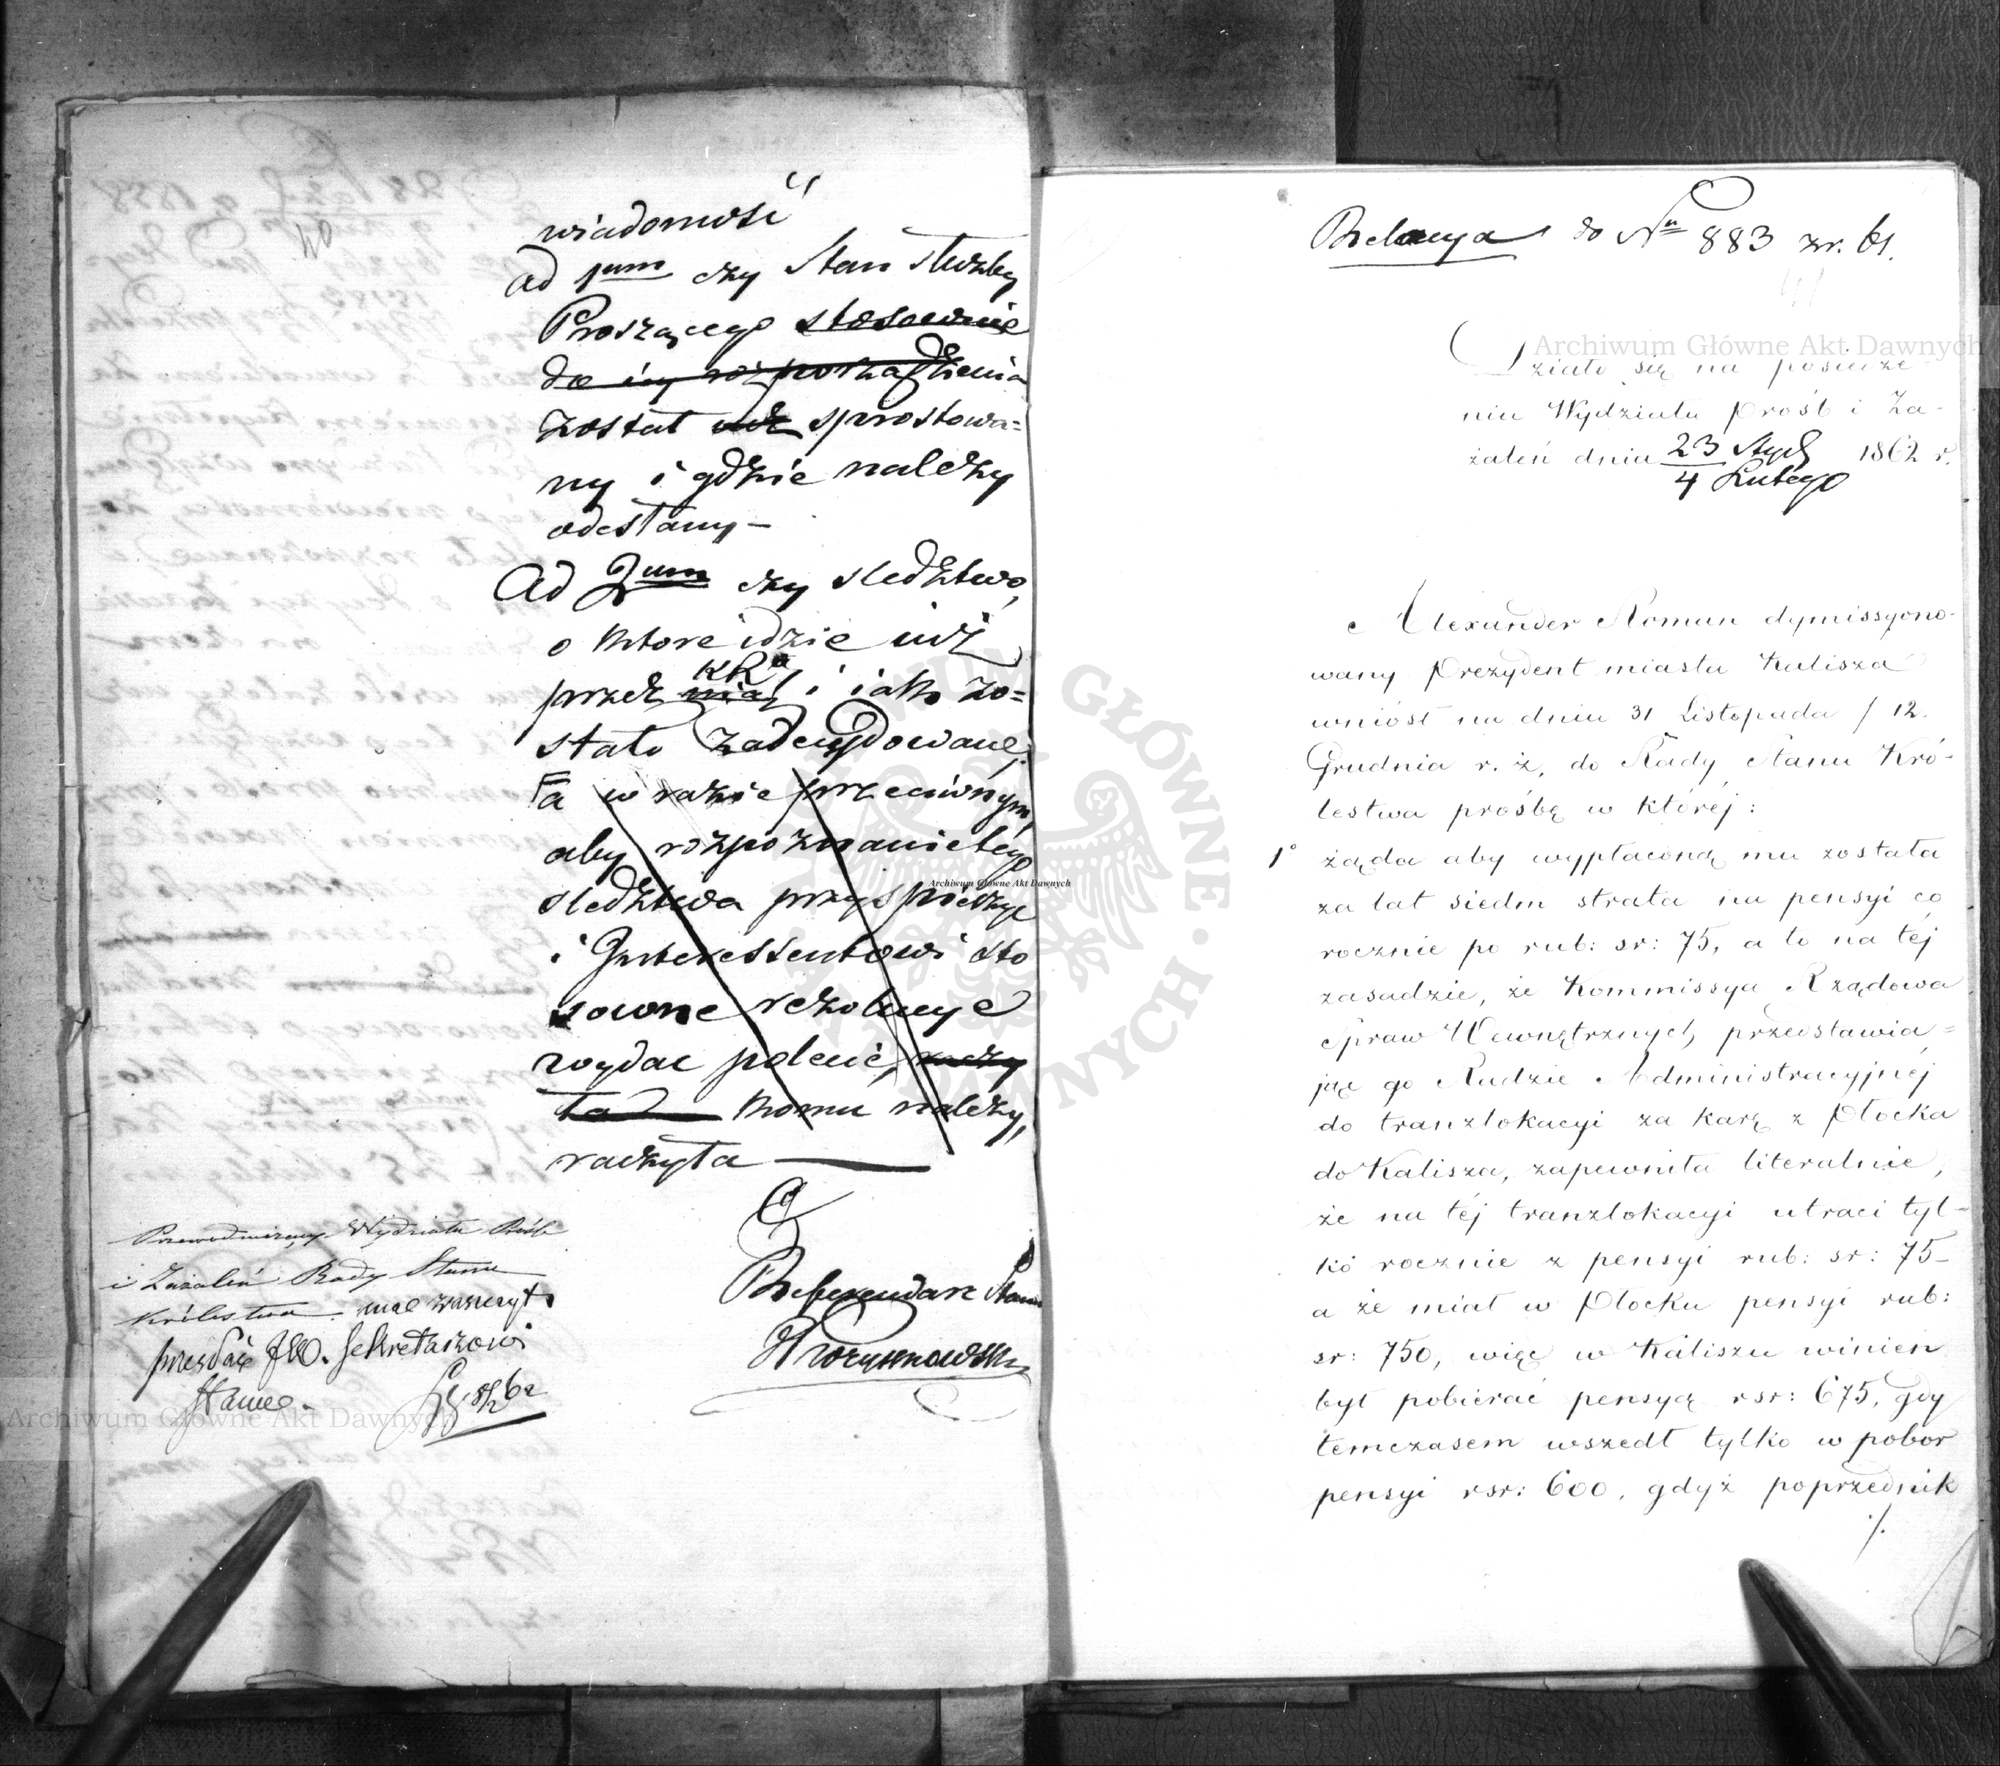 40
wiadomość
ad 1um czy Stan służby
Proszącego stosownie
do iey rozporządzenia
został już sprostowa=
ny i gdzie należy
odesłany —
Ad 2um czy śledztwo,
o które idzie już
KR
przez nią i iako zo=
stało zadecydowane,
a w razie przeciwnym,
aby rozpoznanie tego
śledztwa przyspieszyć
i Interessentowi sto
sowne rezolucye
wydać polecić,
komu należy,
raczyła —
Referendarz Stanu
Przewodniczący Wydziału Próśb
i Zażaleń Rady Stanu
Królestwa ma zaszczyt
przesłać JW. Sekretarzowi
Stanu.
Relacya do Nru 883 z r. 61.
41
Działo się na posiedze-
niu Wydziału Próśb i Za-
żaleń dnia 23 Stycz / 4 Lutego 1862 r.
Alexander Roman dymissyono-
wany Prezydent miasta Kalisza
wniósł na dniu 31 Listopada / 12.
Grudnia r. z. do Rady Stanu Kró-
lestwa prośbę w któréj:
1° żąda aby wypłaconą mu została
za lat siedm strata na pensyi co
rocznie po rub: sr: 75, a to na téj
zasadzie, że Kommissya Rządowa
Spraw Wewnętrznych, przedstawia=
jąc go Radzie Administracyjnéj
do tranzlokacyi za karę z Płocka
do Kalisza, zapewniła literalnie,
że na téj tranzlokacyi utraci tyl-
ko rocznie z pensyi rub: sr: 75-
a że miał w Płocku pensyi rub:
sr: 750, więc w Kaliszu winien
był pobierać pensyą rsr: 675, gdy
temczasem wszedł tylko w pobor
pensyi rsr: 600, gdyż poprzednik
./.
Archiwum Główne Akt Dawnych
Archiwum Główne Akt Dawnych
Archiwum Główne Akt Dawnych
ARCHIWUM GŁÓWNE AKT DAWNYCH